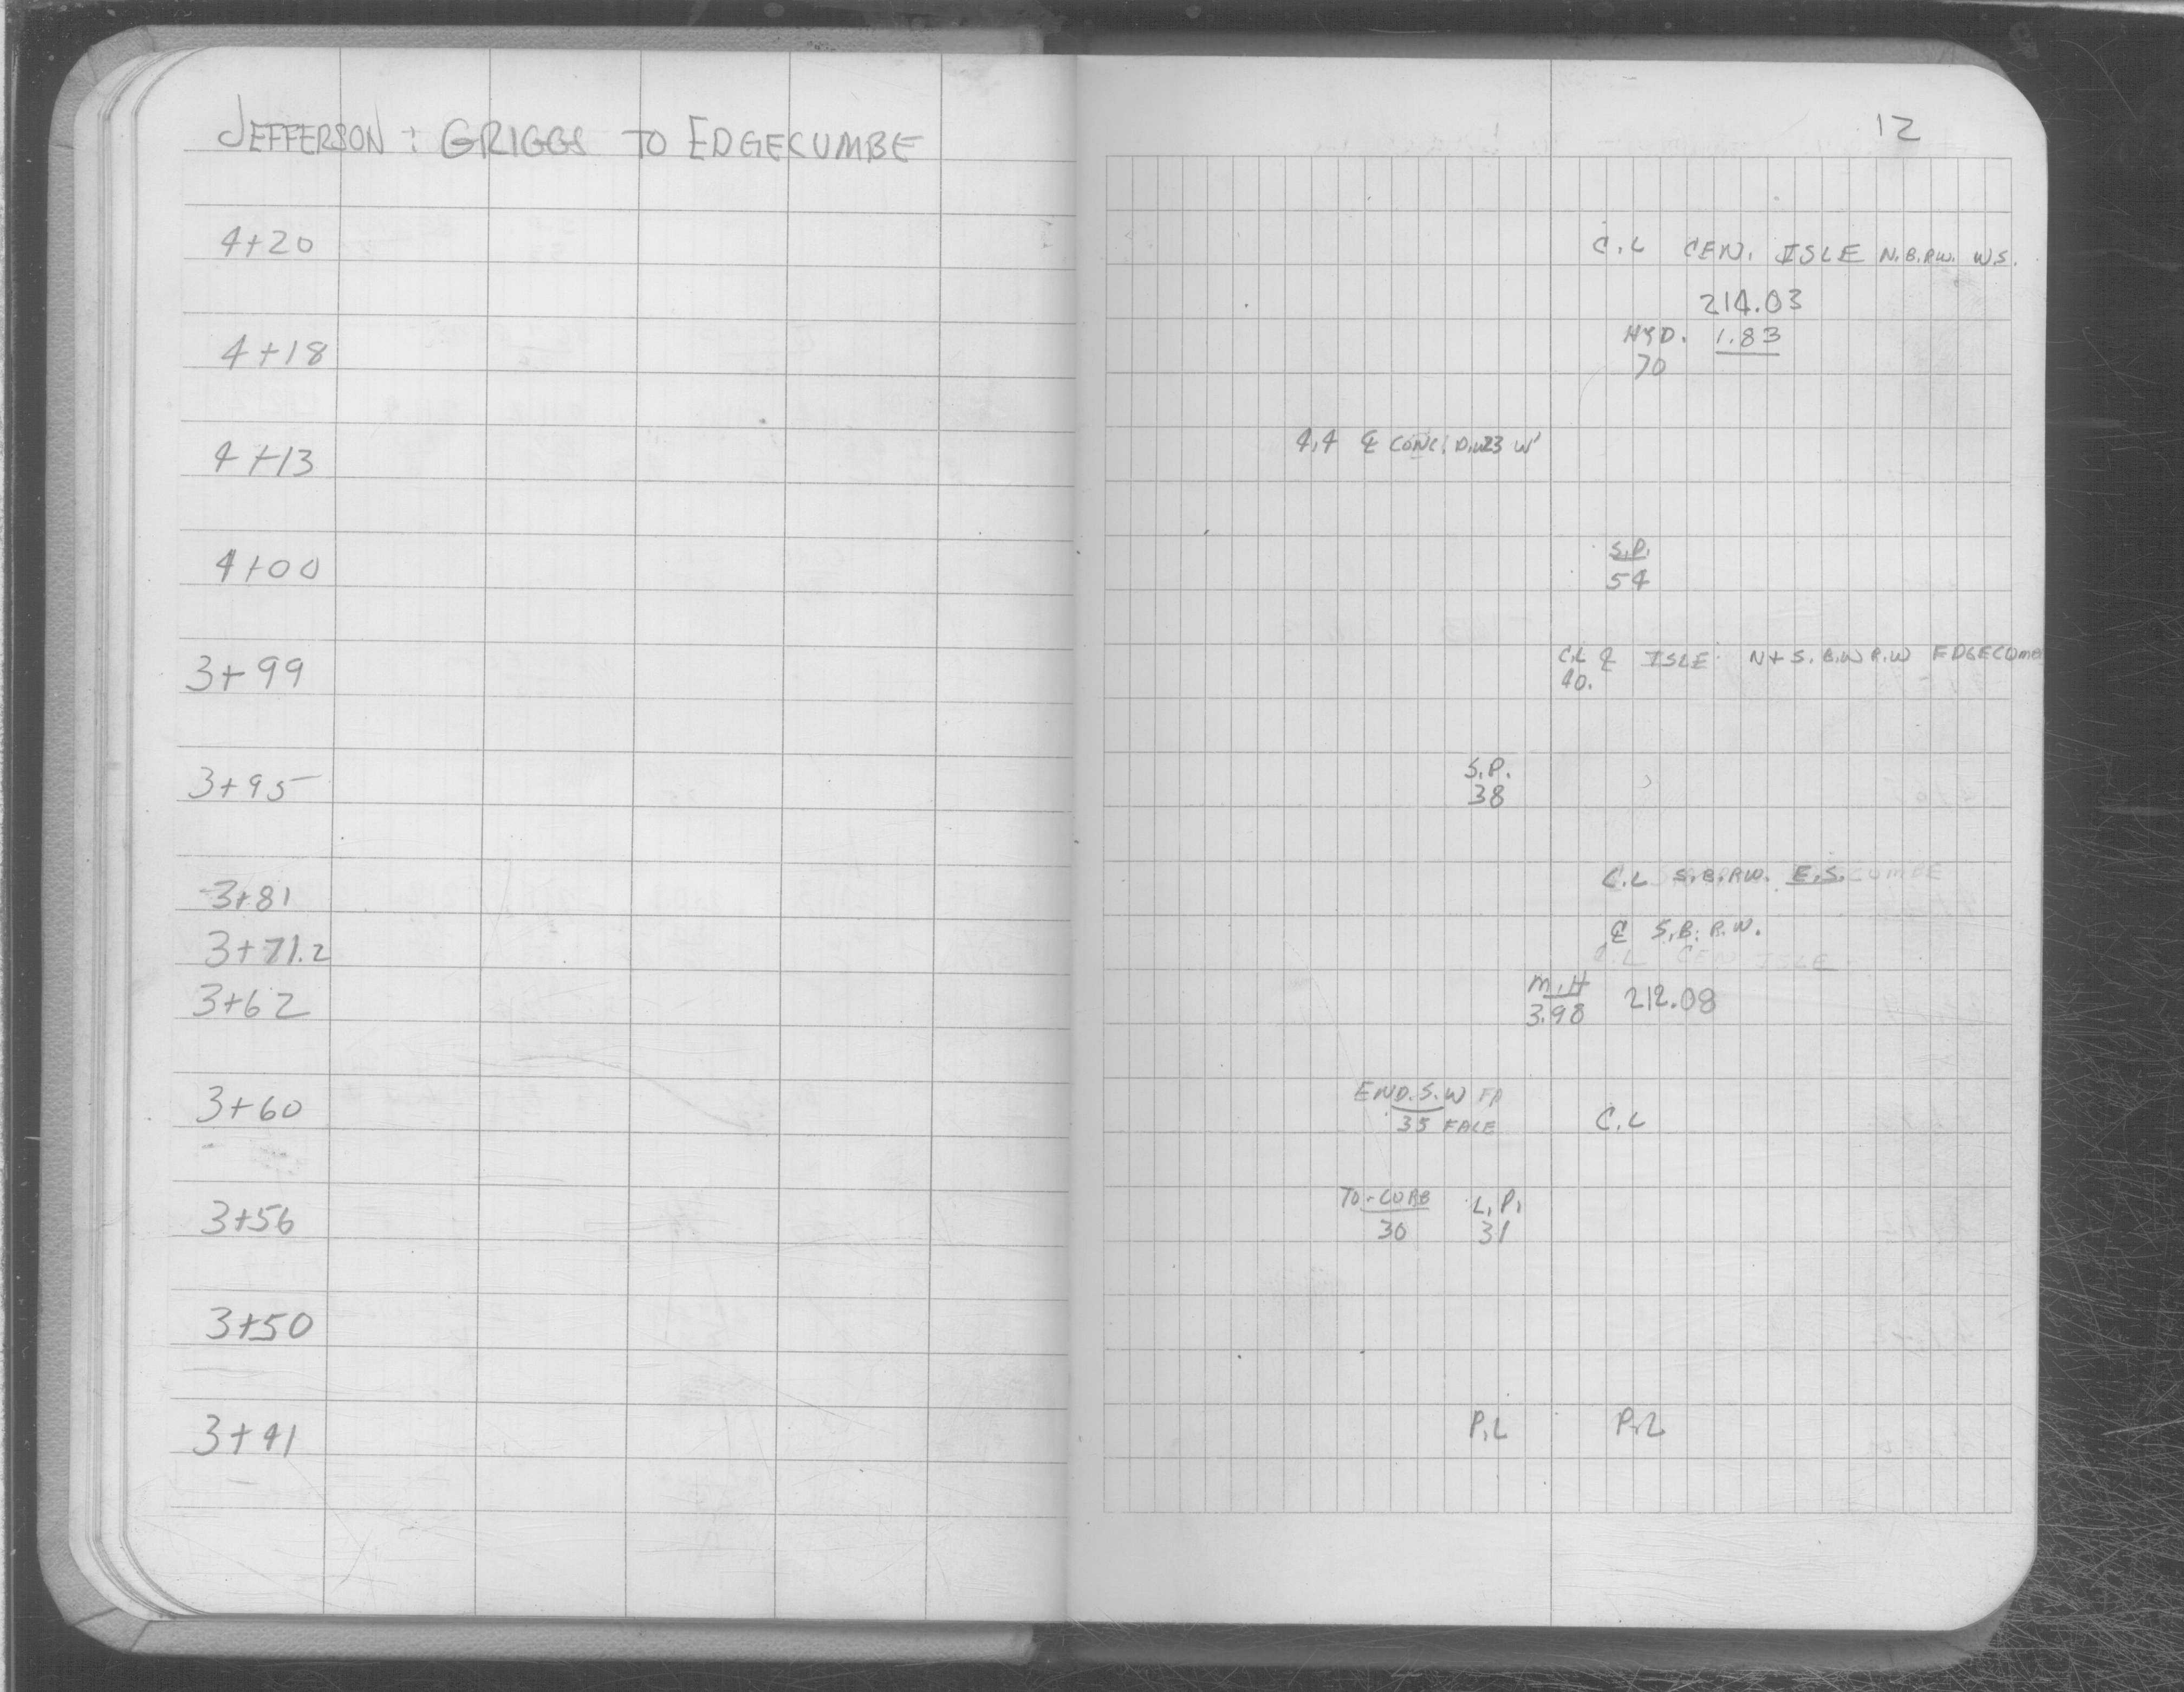 JEFFERSON : GRIGGS TO EDGECUMBE
12
4+20 C.L CEN. ISLE N.B.RW. W.S.
214.03
4+18 HYD. 1.83
70
4+13 4.4 ℄ CONC. W'
4+00 S.P.
54
3+99 C.L ℄ ISLE N+S. B.W R.W EDGECOMB
40.
3+95 S.P.
38
3+81 C.L S.B.RW. E.S. CUMBE
3+71.2 ℄ S.B. R.W.
C.L CEN ISLE
3+62 M.H 212.08
3.98
3+60 END.S.W FA C.L
35 FACE
3+56 TO-CURB L.P.
30 31
3+50
3+41 P.L P.L